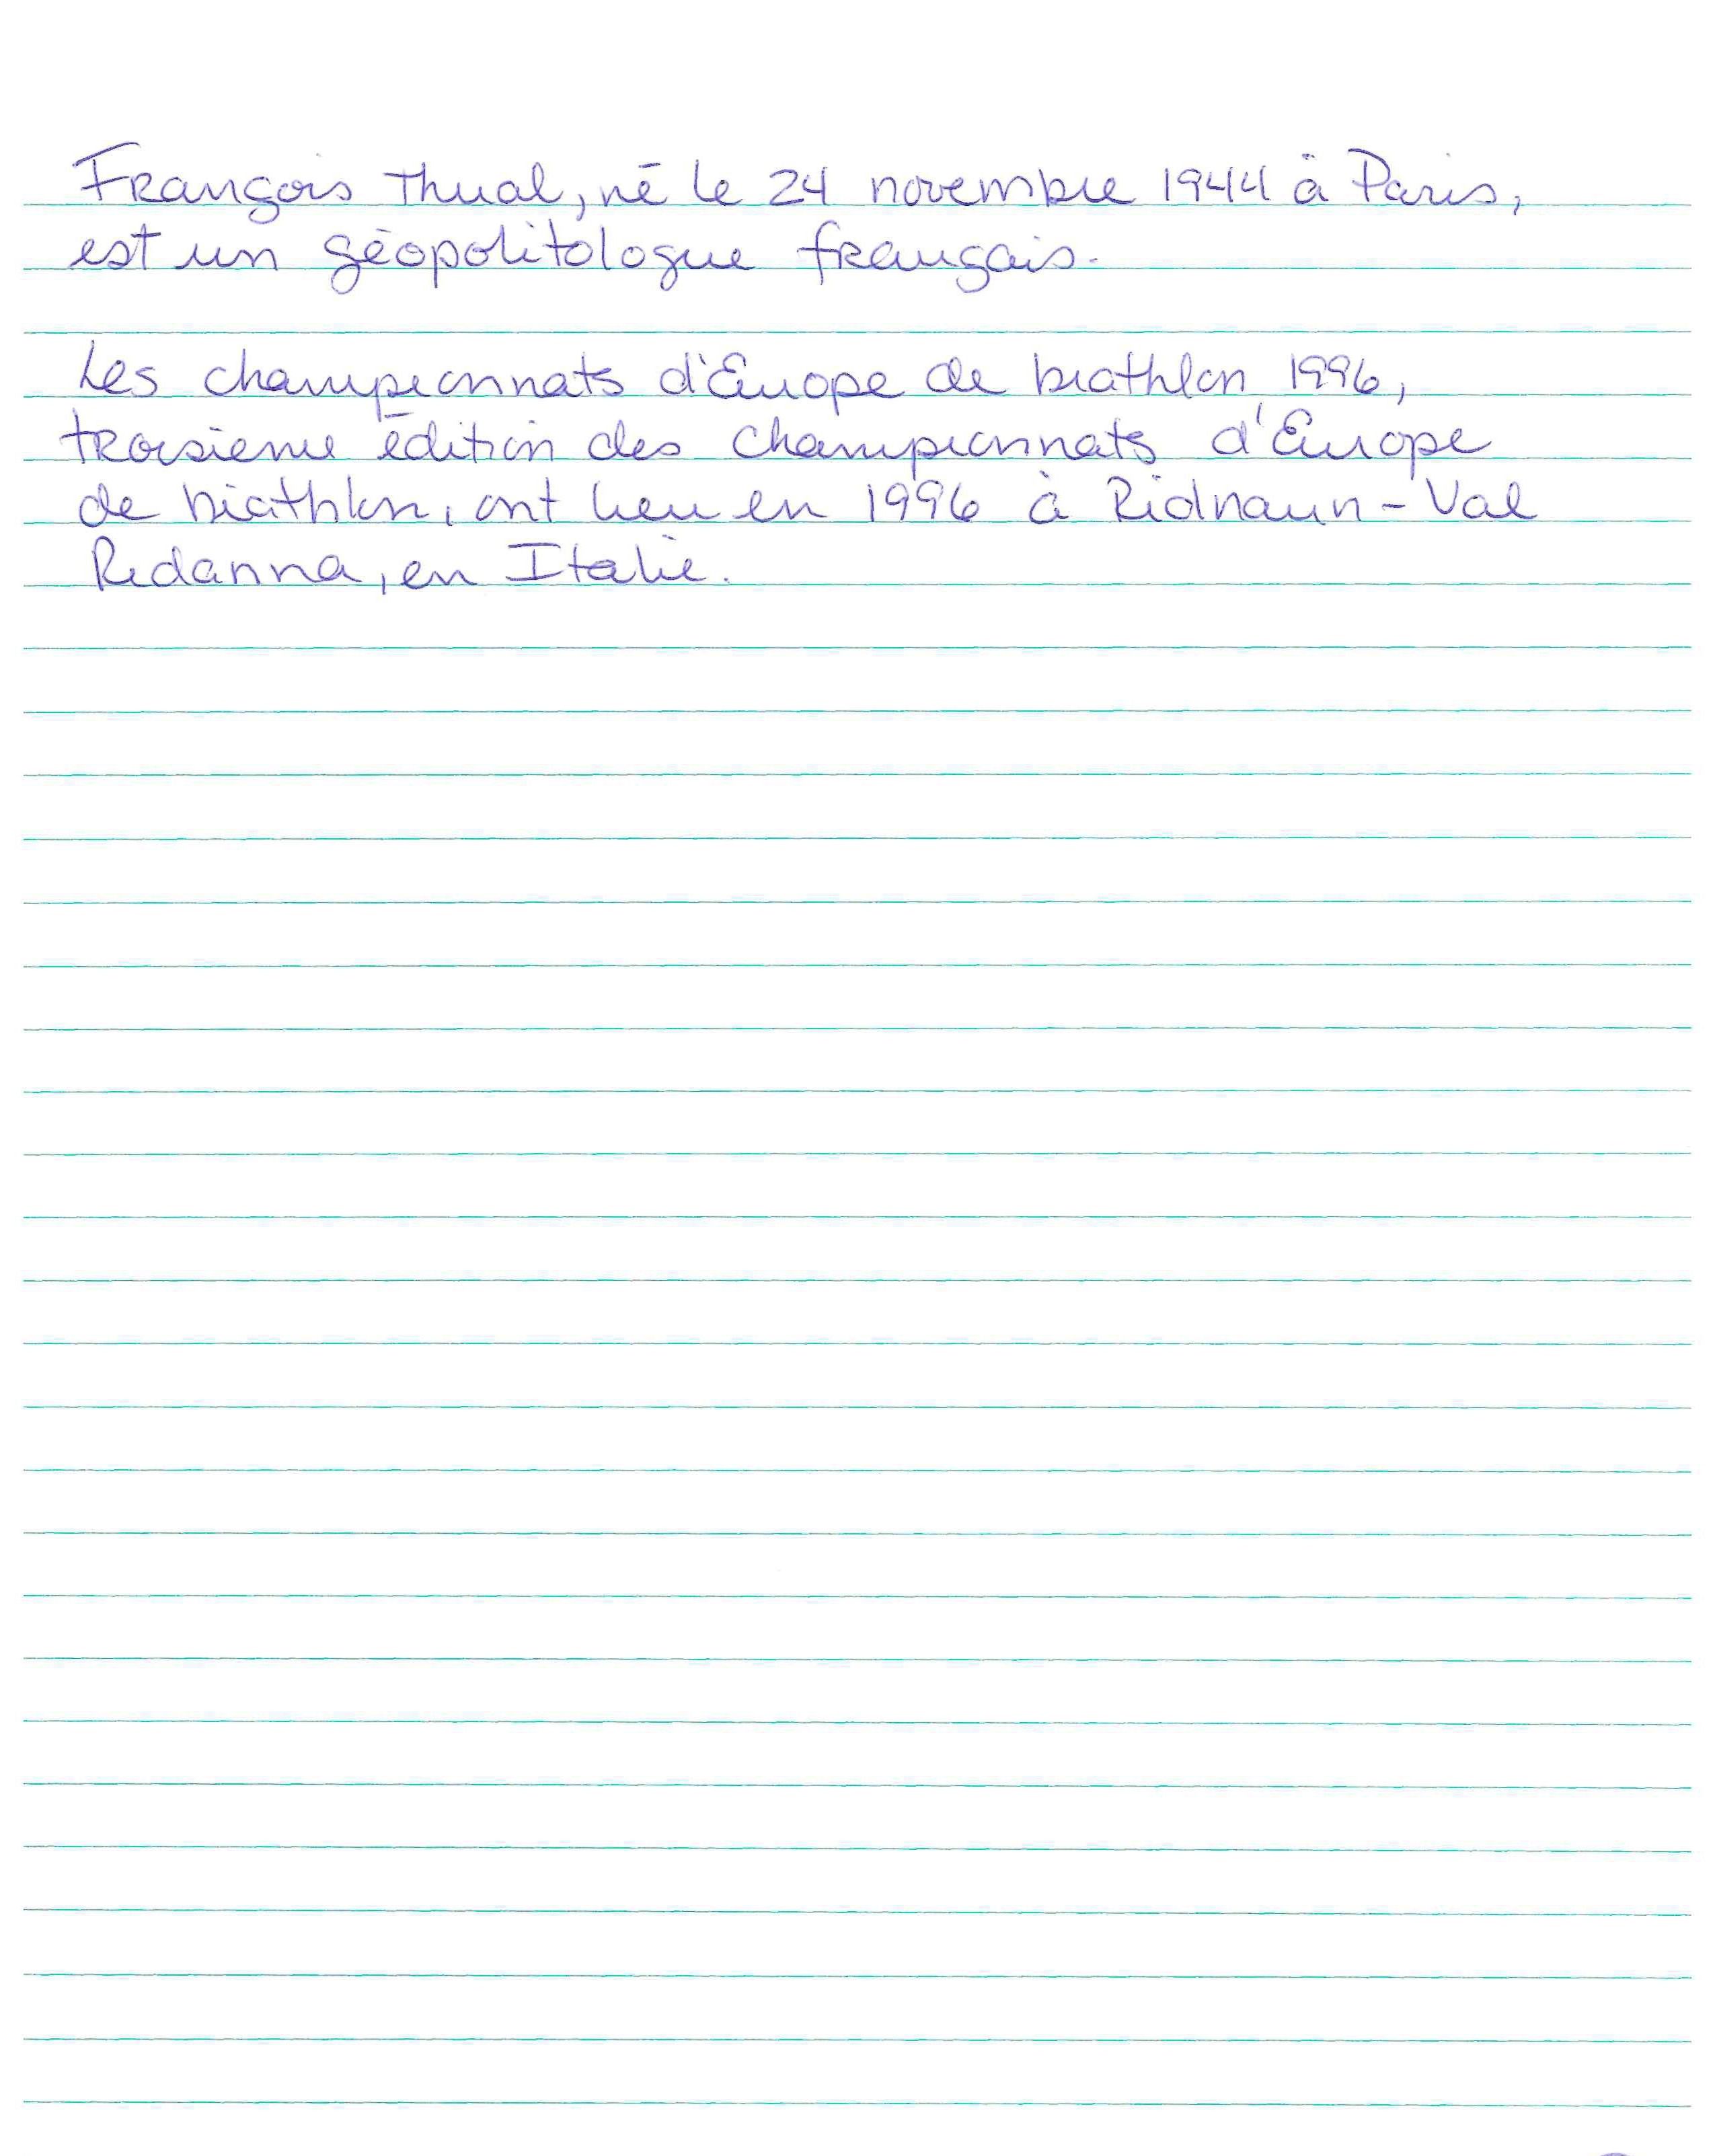 François Thual, né le 24 novembre 1944 à Paris,
est un géopolitologue français.
Les championnats d'Europe de biathlon 1996,
troisieme édition des championnats d'Europe
de biathlon, ont lieu en 1996 à Ridnaun-Val
Ridanna, en Italie.